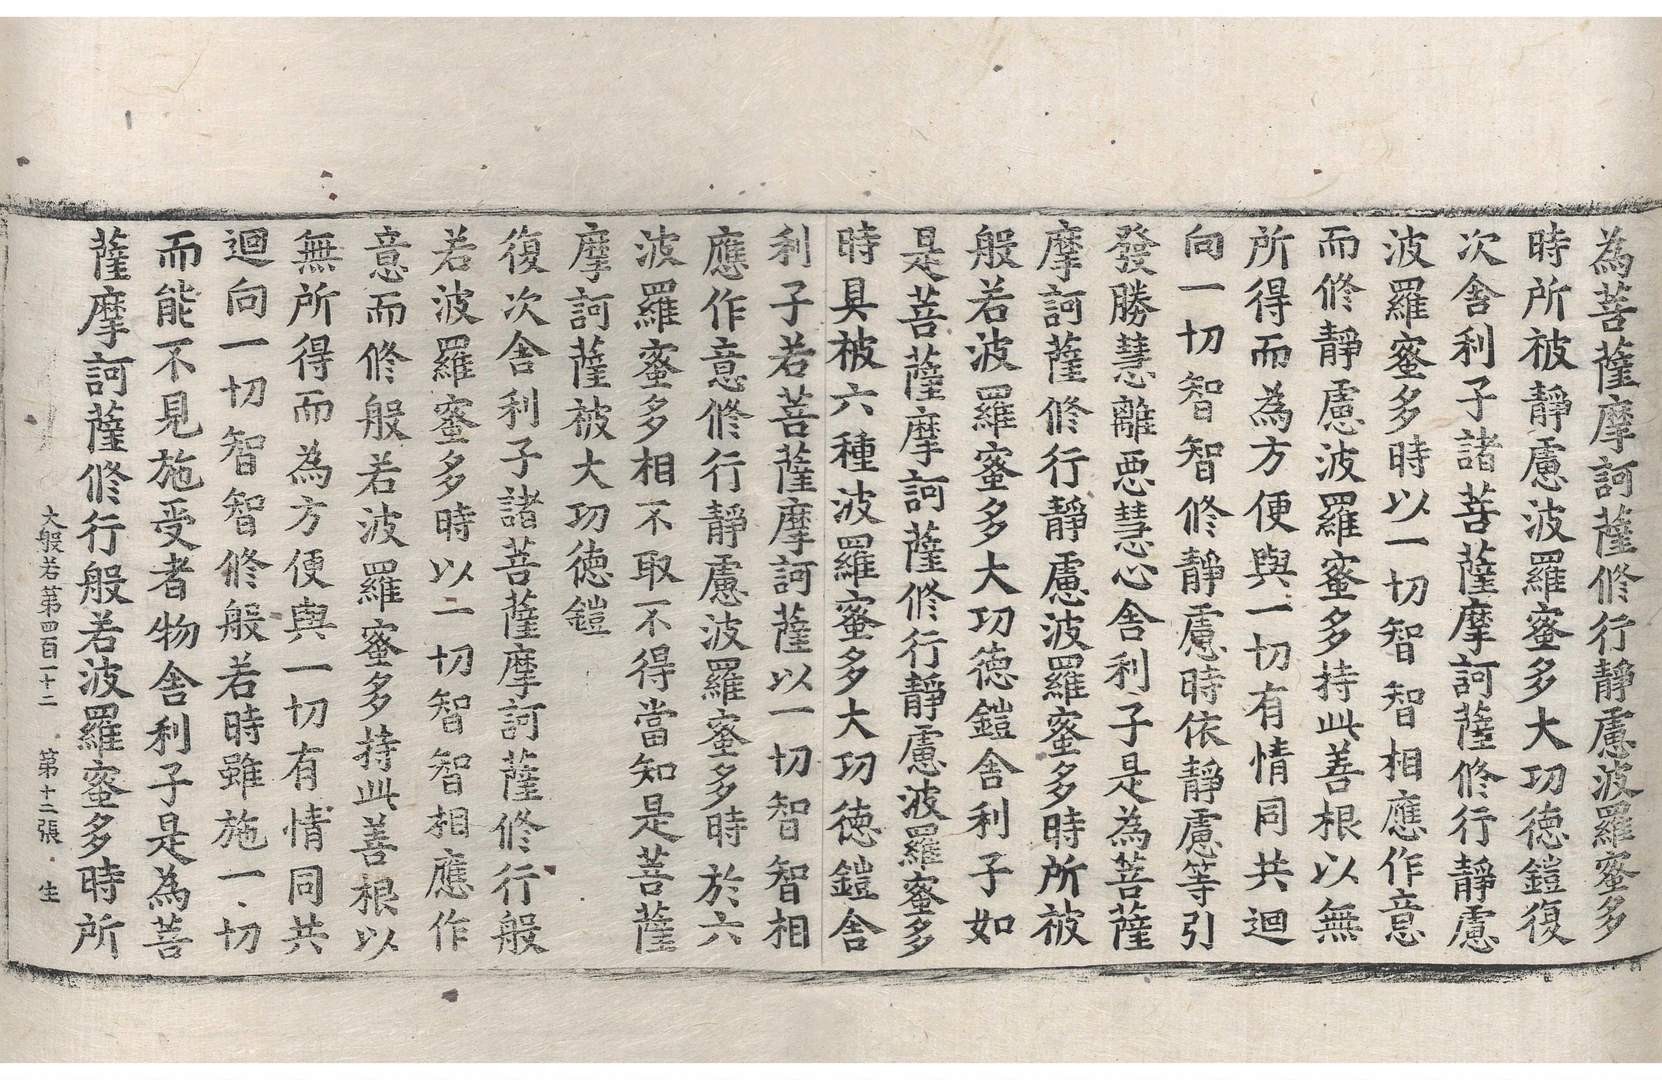 為菩薩摩訶薩修行靜慮波羅蜜多
時所被靜慮波羅蜜多大功德鎧復
次舍利子諸菩薩摩訶薩修行靜慮
波羅蜜多時以一切智智相應作意
而修靜慮波羅蜜多持此善根以無
所得而為方便與一切有情同共迴
向一切智智修靜慮時依靜慮等引
發勝慧離惡慧心舍利子是為菩薩
摩訶薩修行靜慮波羅蜜多時所被
般若波羅蜜多大功德鎧舍利子如
是菩薩摩訶薩修行靜慮波羅蜜多
時具被六種波羅蜜多大功德鎧舍
利子若菩薩摩訶薩以一切智智相
應作意修行靜慮波羅蜜多時於六
波羅蜜多相不取不得當知是菩薩
摩訶薩被大功德鎧
復次舍利子諸菩薩摩訶薩修行般
若波羅蜜多時以一切智智相應作
意而修般若波羅蜜多持此善根以
無所得而為方便與一切有情同共
迴向一切智智修般若時雖施一切
而能不見施受者物舍利子是為菩
薩摩訶薩修行般若波羅蜜多時所
大般若第四百一十二　第十二張　生